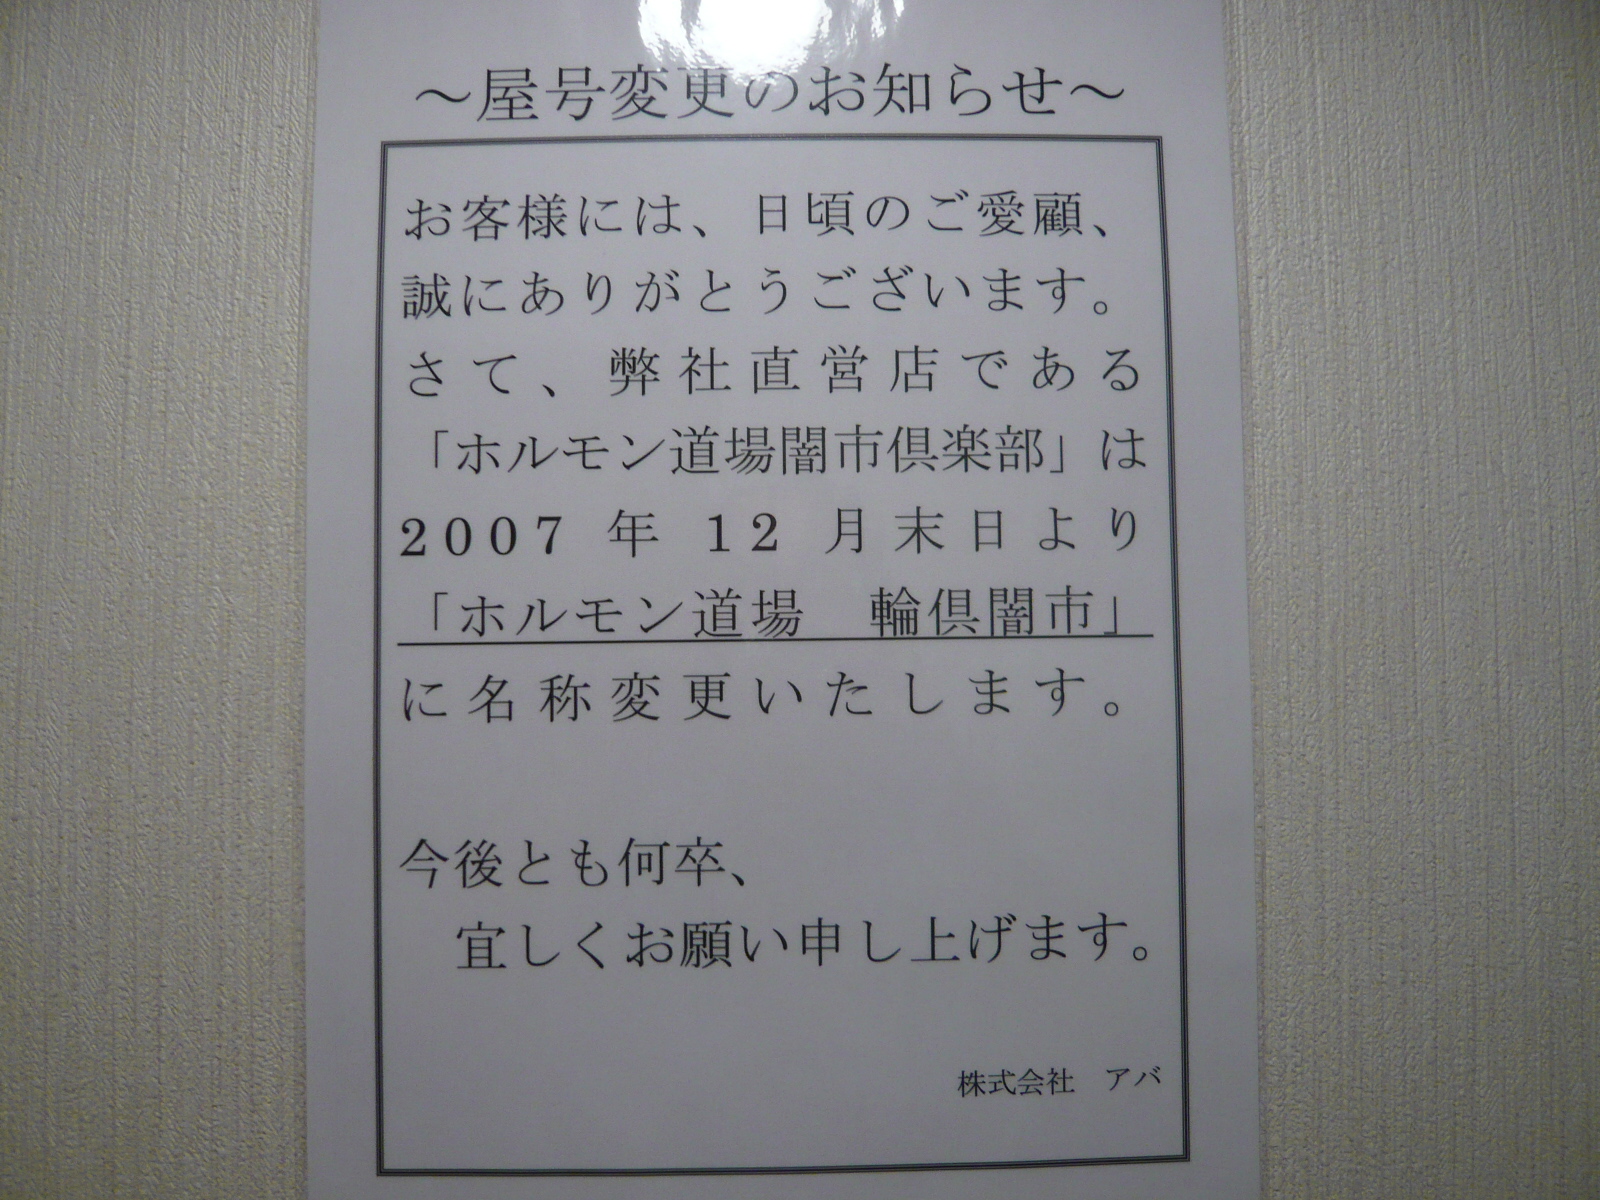 ～屋号変更のお知らせ～
お客様には、日頃のご愛顧、
誠にありがとうございます。
さて、弊社直営店である
「ホルモン道場闇市倶楽部」は
2007 年 12 月末日より
「ホルモン道場　輪倶闇市」
に名称変更いたします。
今後とも何卒、
宜しくお願い申し上げます。
株式会社　アバ